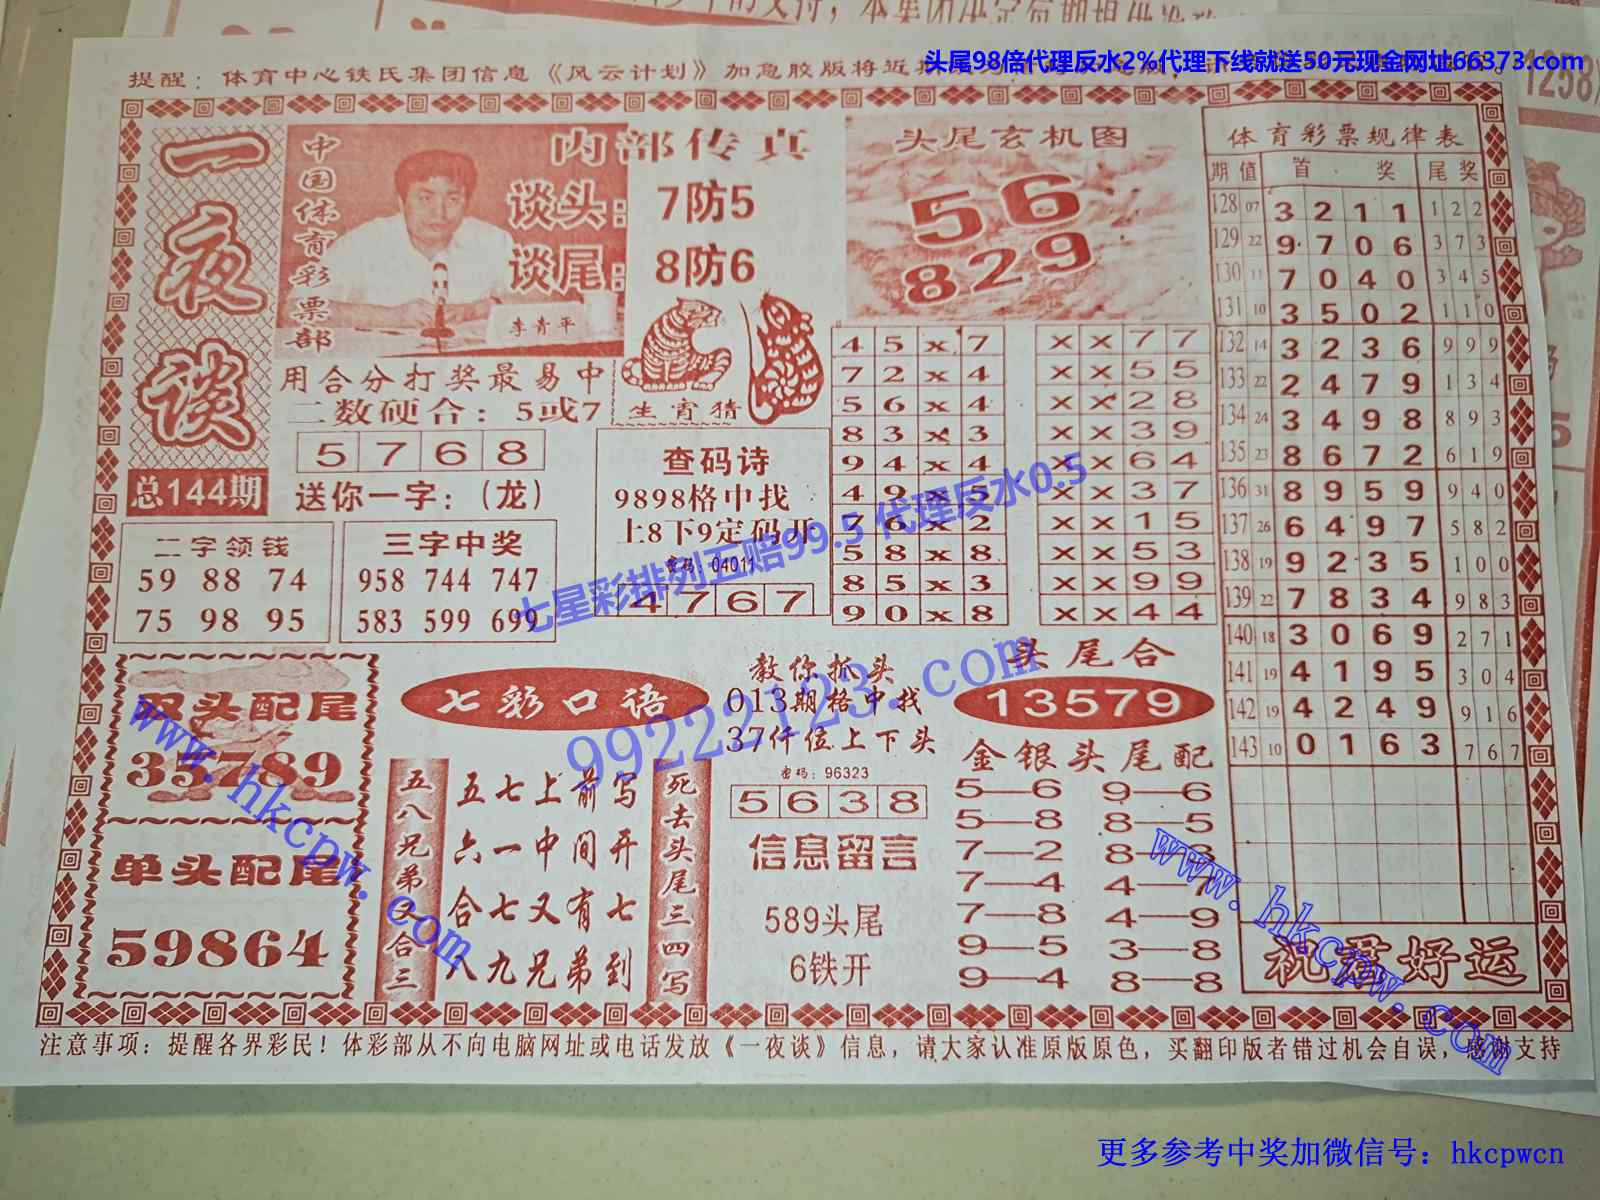 头尾98倍代理反水2%代理下线就送50元现金网址66373.com
提醒：体育中心铁民集团信息《风云计划》加急胶版将近
1258
一夜谈
总144期
中国体育彩票部
内部传真
谈头：7防5
谈尾：8防6
李青平
用合分打奖最易中
二数硬合：5或7
生宵猜
5768
送你一字：（龙）
二字领钱
59 88 74
75 98 95
三字中奖
958 744 747
583 599 699
查码诗
9898格中找
上8下9定码开
密码：04011
4767
头尾玄机图
56
829
45x7
72x4
56x4
83x3
94x4
49x5
76x2
58x8
85x3
90x8
XX77
XX55
XX28
XX39
XX64
XX37
XX15
XX53
XX99
XX44
体育彩票规律表
期 值 首 奖 尾 奖
128 07 3211 122
129 22 9706 373
130 11 7040 345
131 10 3502 110
132 14 3236 999
133 22 2479 134
134 24 3498 893
135 23 8672 619
136 31 8959 940
137 26 6497 582
138 19 9235 100
139 22 7834 983
140 18 3069 271
141 19 4195 304
142 19 4249 916
143 10 0163 767
祝君好运
双头配尾
35789
单头配尾
59864
七彩口语
五八兄弟又合三
五七上前写
六一中间开
合七又有七
人九兄弟到
死去头尾三四写
教你抓头
013期格中找
37仟位上下头
密码：96323
5638
信息留言
589头尾
6铁开
头尾合
13579
金银头尾配
5—6 9—6
5—8 8—5
7—2 8—3
7—4 4—7
7—8 4—9
9—5 3—8
9—4 8—8
注意事项：提醒各界彩民！体彩部从不向电脑网址或电话发放《一夜谈》信息，请大家认准原版原色，买翻印版者错过机会自误，感谢支持
七星彩排列五赔99.5 代理反水0.5
99222123.com
www.hkcpw.com
www.hkcpw.com
更多参考中奖加微信号：hkcpwcn